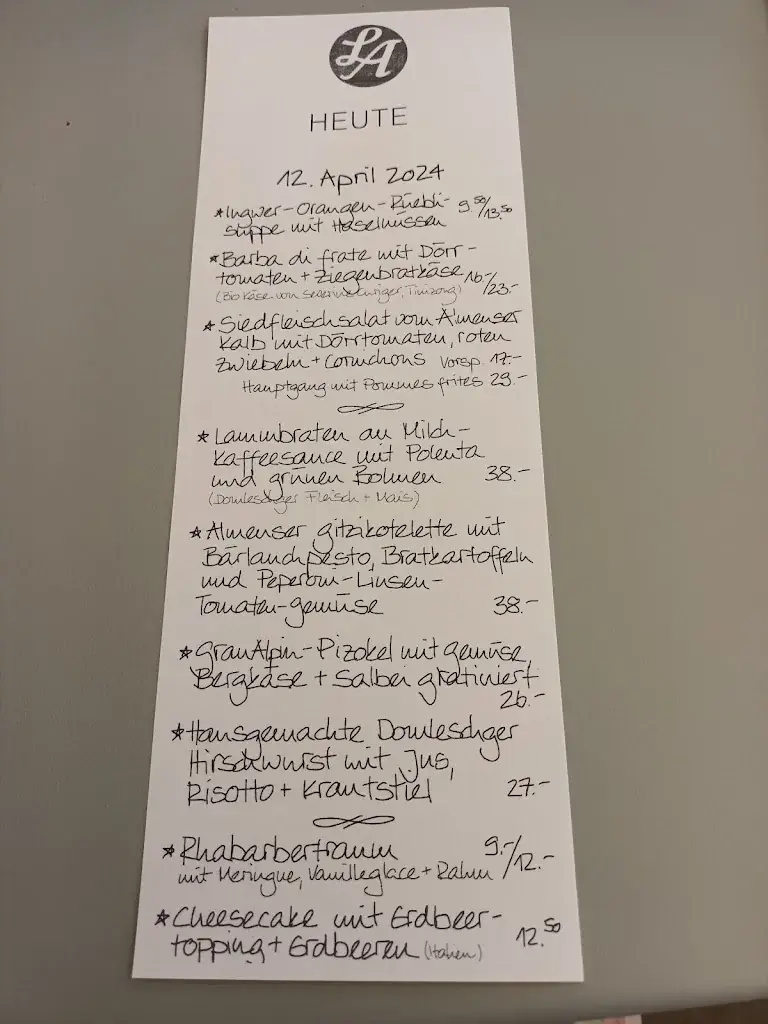 LA
HEUTE
12. April 2024
*Ingwer-Orangen-Rüebli- 9.50/13.50
suppe mit Haselnüssen
*Barba di frate mit Dörr-
tomaten + Ziegenbratkäse 16.-/23.-
(Bio Käse von
*Siedfleischsalat vom Almenser
Kalb mit Dörrtomaten, roten
Zwiebeln + Cornichons Vorsp. 17.-
Hauptgang mit Pommes frites 29.-
*Lammbraten an Milch-
kaffeesauce mit Polenta
und grünen Bohnen 38.-
(Domleschger Fleisch + Mais)
*Almenser Gitzikotelette mit
Bärlauchpesto, Bratkartoffeln
und Peperoni-Linsen-
Tomaten-gemüse 38.-
*GranAlpin-Pizokel mit Gemüse,
Bergkäse + Salbei gratiniert
26.-
*Hausgemachte Domleschger
Hirschwurst mit Jus,
Risotto + Krautstiel 27.-
*Rhabarbertraum 9.-/12.-
mit Meringue, Vanilleglace + Rahm
*Cheesecake mit Erdbeer-
topping + Erdbeeren (Italien) 12.50